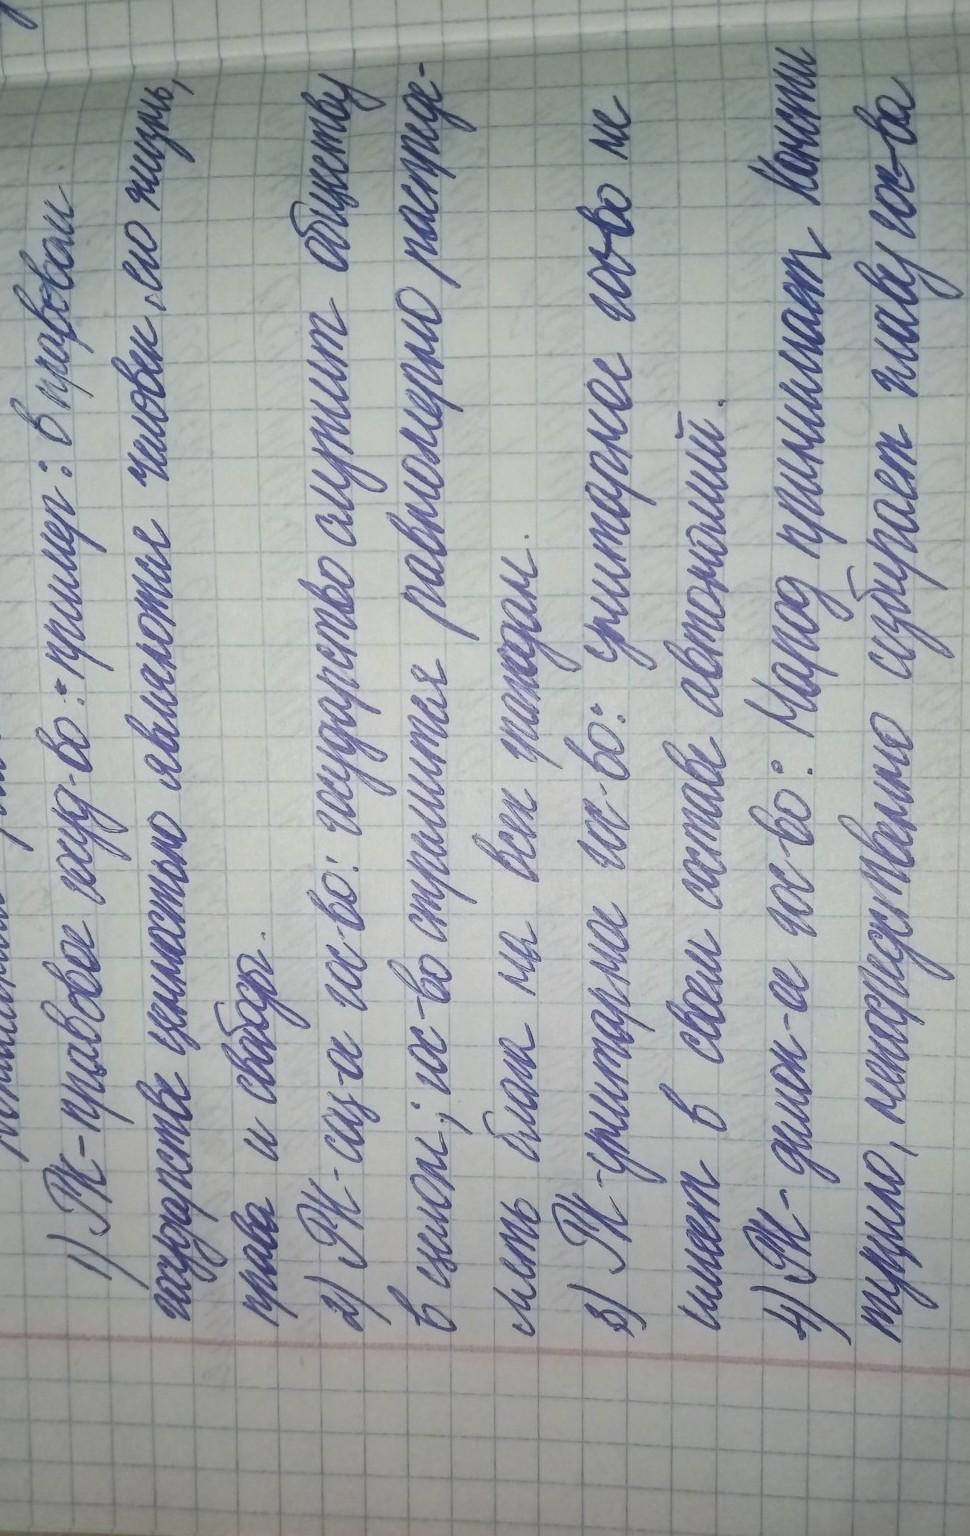 1) РК-правовое госуд-во: пример: в правовом
государстве ценностью являются человек, его жизнь,
права и свободы.
2) РК-соц-ое гос-во: государство служит обществу
в целом; гос-во стремится равномерно распреде-
лить блага на всех граждан.
3) РК-унитарное гос-во: унитарное гос-во не
имеет в своем составе автономий.
4) РК-демок-ое гос-во: Народ принимает Консти
туцию, непосредственно избирает главу гос-ва